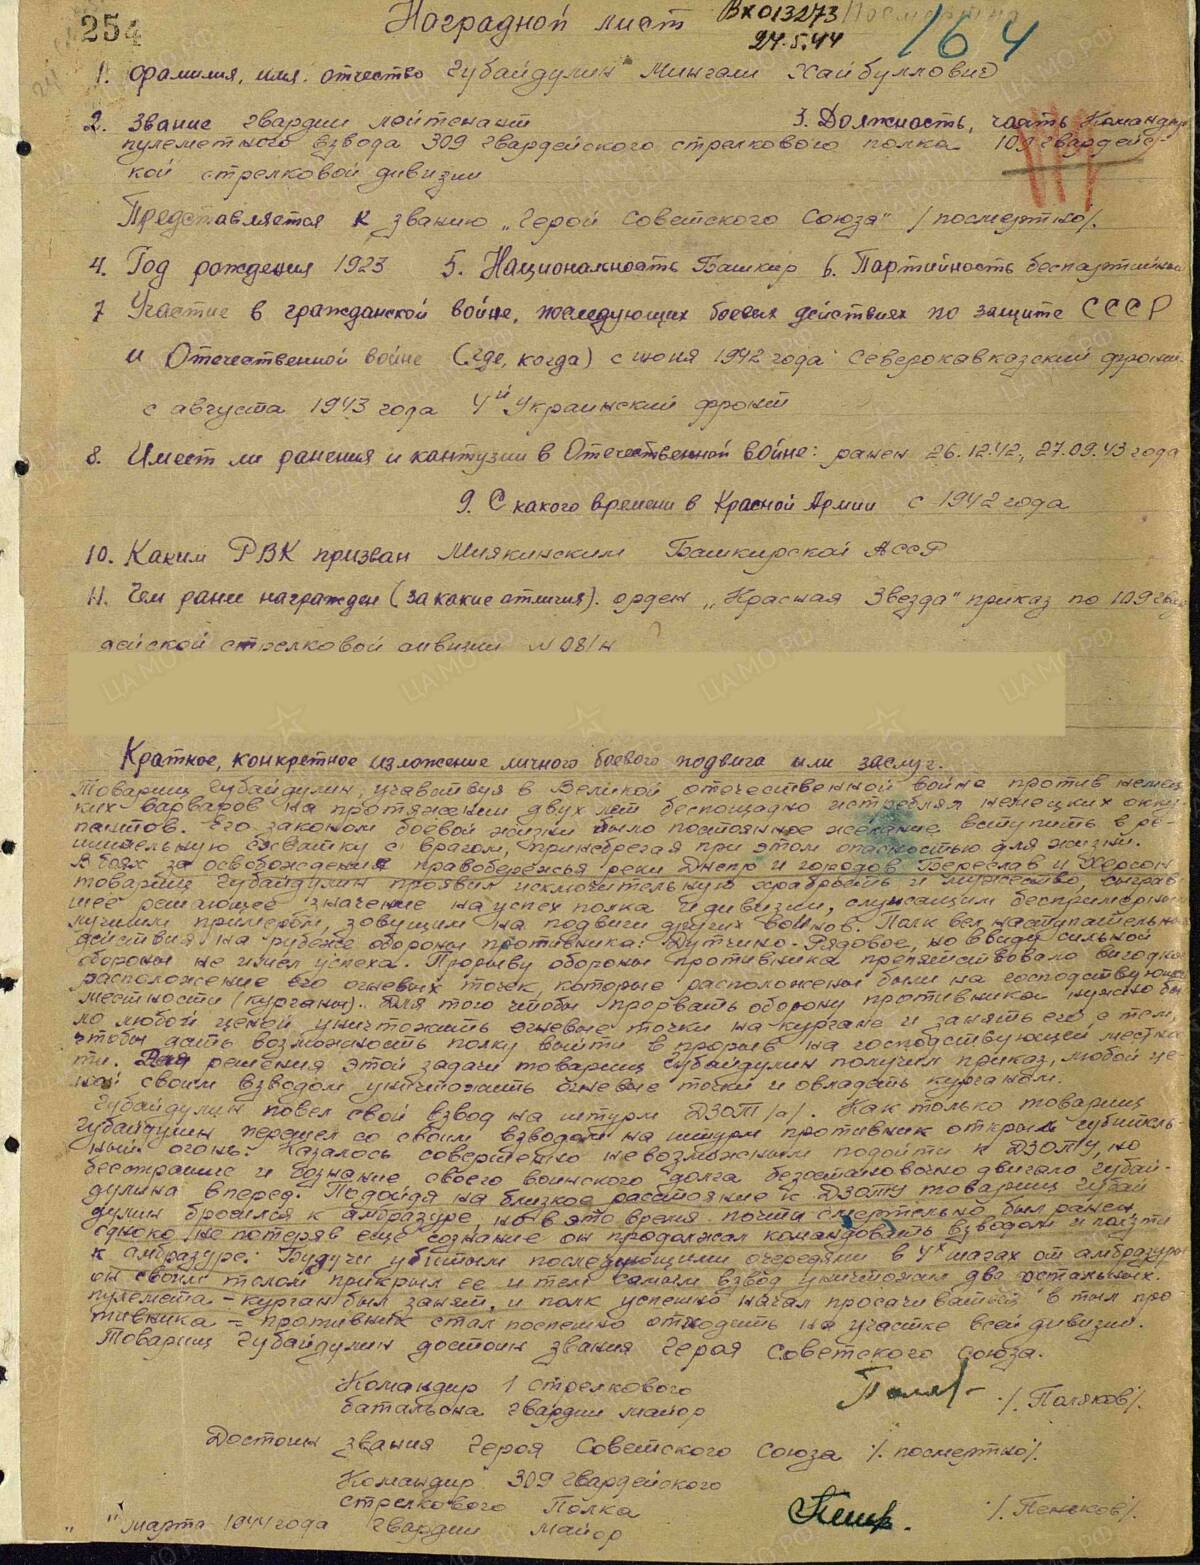 254
Наградной лист
Вх013273
24.5.44
Посмертно
164
1. Фамилия, имя, отчество Губайдулин Мингали Хайбуллович
2. Звание гвардии лейтенант 3. Должность, часть Командир
пулеметного взвода 309 гвардейского стрелкового полка 109 гвардейс-
кой стрелковой дивизии
Представляется к званию „Герой Советского Союза" /посмертно/.
4. Год рождения 1923 5. Национальность Башкир 6. Партийность беспартийный
7 Участие в гражданской войне, последующих боевых действиях по защите СССР
и Отечественной войне (где, когда) с июня 1942 года Северокавказский фронт.
с августа 1943 года 4й Украинский фронт
8. Имеет ли ранения и кантузии в Отечественной войне: ранен 26.12.42, 27.09.43 года
9. С какого времени в Красной Армии с 1942 года
10. Каким РВК призван Миякинским Башкирской АССР
11. Чем ранее награжден (за какие отличия). орден „Красная Звезда" приказ по 109 гвар
дейской стрелковой дивизии №08/н
Краткое, конкретное изложение личного боевого подвига или заслуг.
Товарищ Губайдулин, участвуя в Великой отечественной войне против немец
ких варваров на протяжении двух лет беспощадно истреблял немецких окку
пантов. Его законом боевой жизни было постоянное желание вступить в ре-
шительную схватку с врагом, принебрегая при этом опасностью для жизни.
В боях за освобождение правобережья реки Днепр и городов Береслав и Херсон
товарищ Губайдулин проявил исключительную храбрость и мужество, сыграв
шее решающее значение на успех полка и дивизии, служащим беспримерным
лучшим примером, зовущим на подвиги других воинов. Полк вел наступательные
действия на рубеже обороны противника: Дутчино-Рядовое, но ввиду сильной
обороны не имел успеха. Прорыву обороны противника препятствовало выгодное
расположение его огневых точек, которые расположены были на господствующей
местности (курганы). Для того чтобы прорвать оборону противника нужно бы
ло любой ценой уничтожить огневые точки на кургане и занять его с тем,
чтобы дать возможность полку выйти в прорыв на господствующей местно
ти. Для решения этой задачи товарищ Губайдулин получил приказ, любой це-
ной своим взводом уничтожить огневые точки и овладеть курганом.
Губайдулин повел свой взвод на штурм ДЗОТ/а/. Как только товарищ
Губайдулин перешел со своим взводом на штурм противник открыл губитель-
ный огонь. Казалось совершенно невозможным подойти к ДЗОТу, но
бесстрашие и сознание своего воинского долга безостановочно двигало Губай-
дулина вперед. Подойдя на близкое расстояние к ДЗОТу товарищ Губай
дулин бросился к амбразуре, но в это время почти смертельно был ранен,
однако не потеряв еще сознание он продолжал командовать взводом и ползти
к амбразуре. Будучи убитым последующими очередями в 4х шагах от амбразуры
он своим телом прикрыл ее и тем самым взвод уничтожил два остальных
пулемета - курган был занят, и полк успешно начал просачиваться в тыл про-
тивника - противник стал поспешно отходить на участке всей дивизии.
Товарищ Губайдулин достоин звания Героя Советского Союза.
Командир 1 стрелкового
батальона гвардии майор /Поляков/.
Достоин звания Героя Советского Союза /посмертно/.
Командир 309 гвардейского
стрелкового Полка
„ " марта 1944 года гвардии майор /Пеньков/.